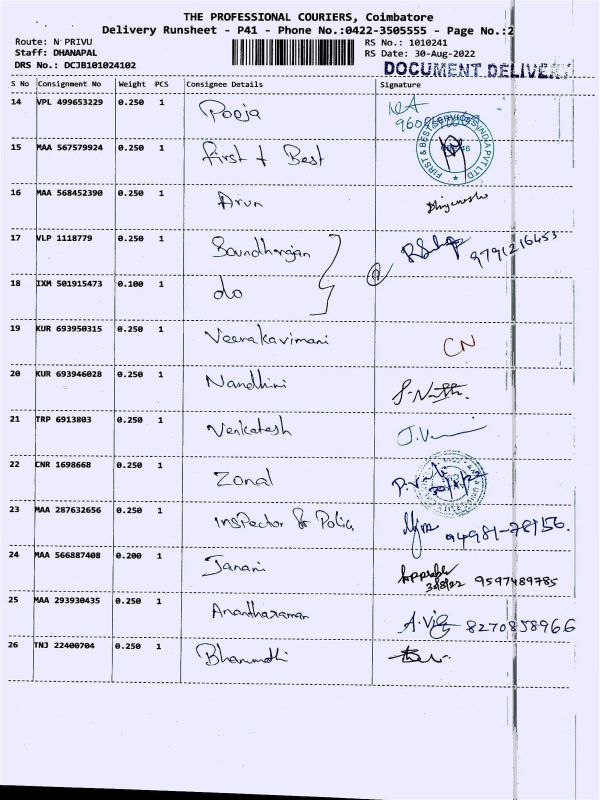 THE PROFESSIONAL COURIERS, Coimbatore
Delivery Runsheet - P41 - Phone No.:0422-3505555 - Page No.:2
Route: N PRIVU RS No.: 1010241
Staff: DHANAPAL RS Date: 30-Aug-2022
DRS No.: DCJB101024102 DOCUMENT DELIVERY
S No Consignment No Weight PCS Consignee Details Signature
14 VPL 499653229 0.250 1 Pooja
15 MAA 567579924 0.250 1 First & Best FIRST & BEST PVT LTD
16 MAA 568452390 0.250 1 Arun
17 VLP 1118779 0.250 1 Soundharajan 9791216453
18 IXM 501915473 0.100 1 do
19 KUR 693950315 0.250 1 Veerakavimani CN
20 KUR 693946028 0.250 1 Nandhini
21 TRP 6913803 0.250 1 Venkatesh
22 CNR 1698668 0.250 1 Zonal 30/8/22
23 MAA 287632656 0.250 1 Inspector of Police 94981-78156.
24 MAA 566887408 0.200 1 Janani 30/8/22 9597489785
25 MAA 293930435 0.250 1 Anantharaman 8270858966
26 TNJ 22400704 0.250 1 Bhanumathi